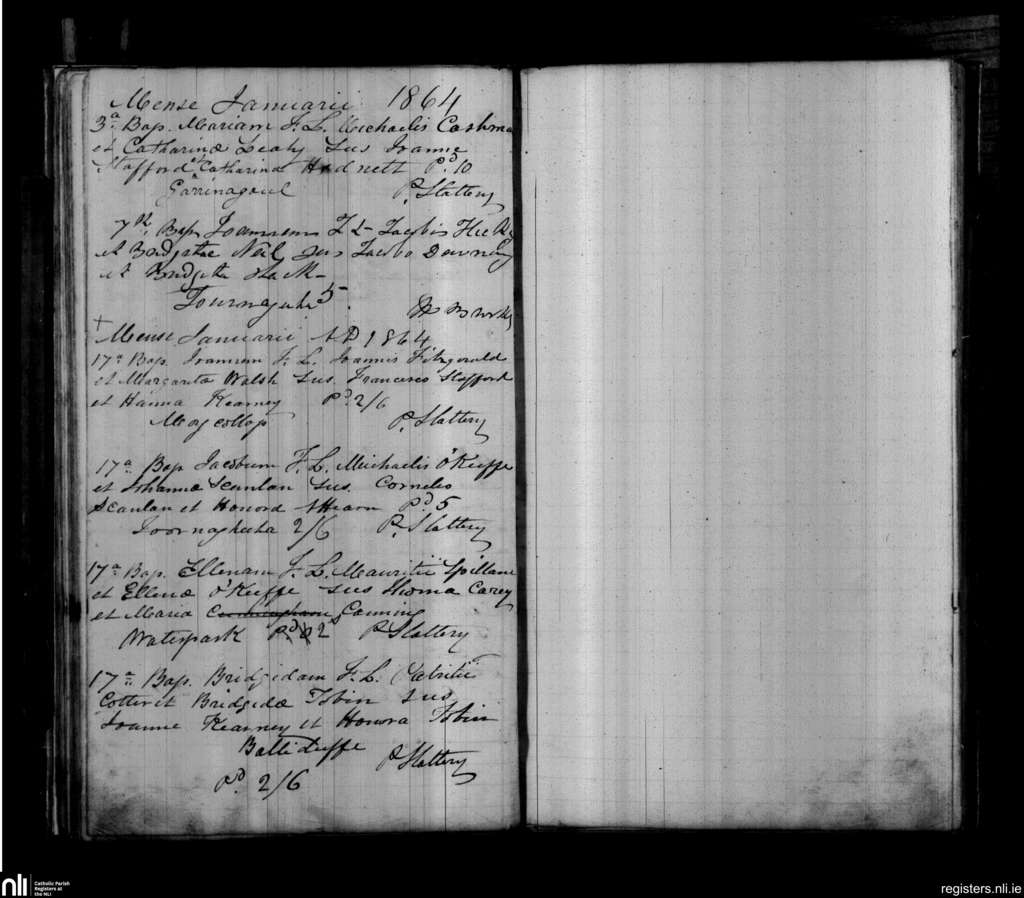 Mense Januarii 1864
3a Bap. Mariam F. L. Michaelis Cashma
et Catharinæ Leahy Sus Joanne
Stafford et Catharina Hodnett Pd 10
Garrinagoul P. Slattery
7th Bap Joannem F L Jacobis
et Bridgetae Neil Sus Jacobo Downey
et Bridgeta
5
+
Mense Januarii AD 1864
17a Bap. Joannem F. L. Joannis Fitzgerald
et Margarita Walsh Sus. Francesco Stafford
et Hanna Kearney Pd. 2/6
Moycollop P. Slattery
17a Bap Jacobum F. L. Michaelis O'Keeffe
et Johanna Scanlan Sus. Cornelio
Scanlan et Honora AHearn Pd 5
2/6 P. Slattery
17a Bap. Ellenam F. L. Mauritii Spillane
et Ellenæ O'Keeffe Sus Thoma Carey
et Maria Cunningham Canning
Waterpark Pd 2s P Slattery
17a Bap. Bridgidam F. L. Patritii
Cotter et Bridgidæ Tobin Sus
Joanne Kearney et Honora Tobin
Balliduffe P Slattery
Pd. 2/6
nli Catholic Parish
Registers at
the NLI
registers.nli.ie